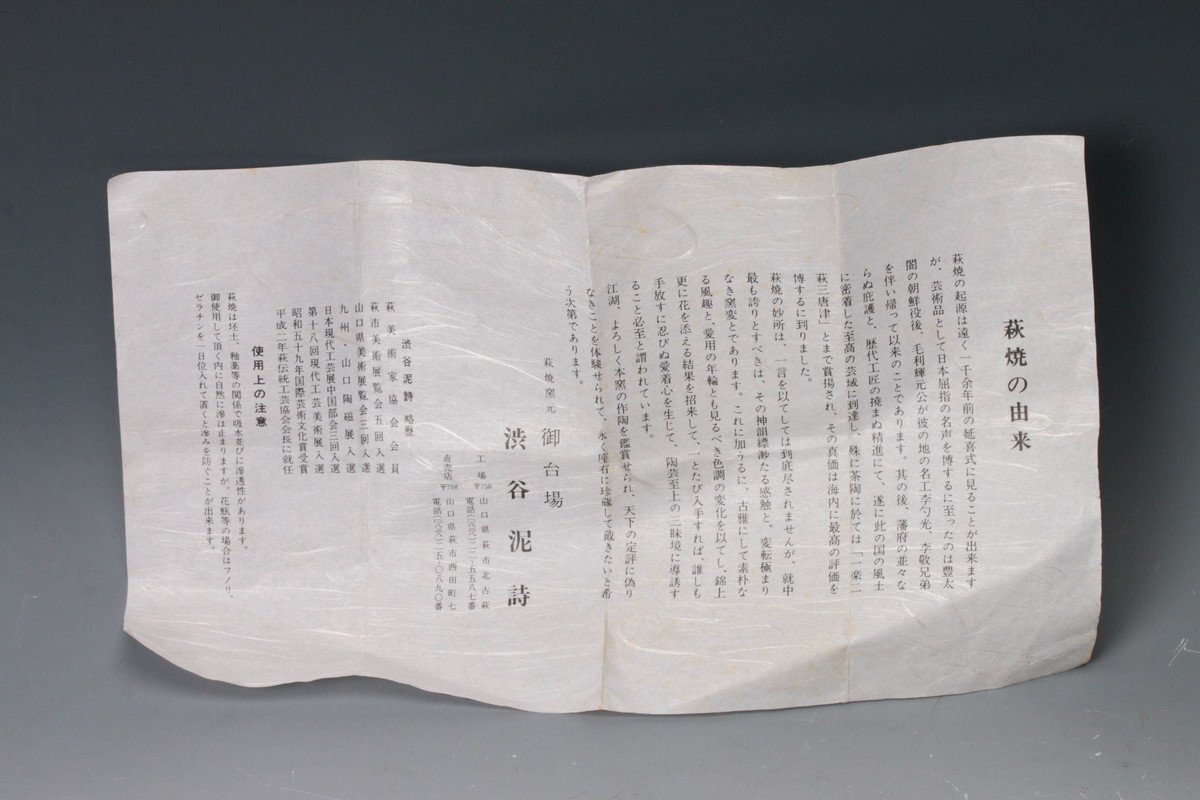 萩焼の由来
萩焼の起源は遠く一千余年前の延喜式に見ることが出来ます
が、芸術品として日本屈指の名声を博するに至ったのは豊太
閤の朝鮮役後、毛利輝元公が彼の地の名工李勺光、李敬兄弟
を伴い帰って以来のことであります。其の後、藩府の並々な
らぬ庇護と、歴代工匠の撓まぬ精進にて、遂に此の国の風土
に密着した至高の芸域に到達し、殊に茶陶に於ては「一楽二
萩三唐津」とまで賞揚され、その真価は海内に最高の評価を
博するに到りました。
萩焼の妙所は、一言を以てしては到底尽されませんが、就中
最も誇りとすべきは、その神韻縹渺たる感触と、変転極まり
なき窯変とであります。これに加うるに、古雅にして素朴な
る風趣と、愛用の年輪とも見るべき色調の変化を以てし、錦上
更に花を添える結果を招来して、一とたび入手すれば、誰しも
手放すに忍びぬ愛着心を生じて、陶芸至上の三昧境に導誘す
ること必至と謂われています。
江湖、よろしく本窯の作陶を鑑賞せられ、天下の定評に偽り
なきことを体験せられて、永く座右に珍蔵して戴きたいと希
う次第であります。
萩焼窯元 御台場
渋谷泥詩
工場 〒758 山口県萩市北古萩
電話(〇八三八)二二-五五八七番
直売店 〒758 山口県萩市西田町七
電話(〇八三八)二五-〇八九〇番
渋谷泥詩 略歴
萩美術家協会会員
萩市美術展覧会五回入選
山口県美術展覧会三回入選
九州・山口陶磁展入選
日本現代工芸展中国部会三回入選
第十八回現代工芸美術展入選
昭和五十九年国際芸術文化賞受賞
平成二年萩伝統工芸協会会長に就任
使用上の注意
萩焼は坯土、釉薬等の関係で吸水並びに滲透性があります。
御使用して頂く内に自然に滲は止まりますが、花瓶等の場合はフノリ、
ゼラチンを一日位入れて置くと滲みを防ぐことが出来ます。